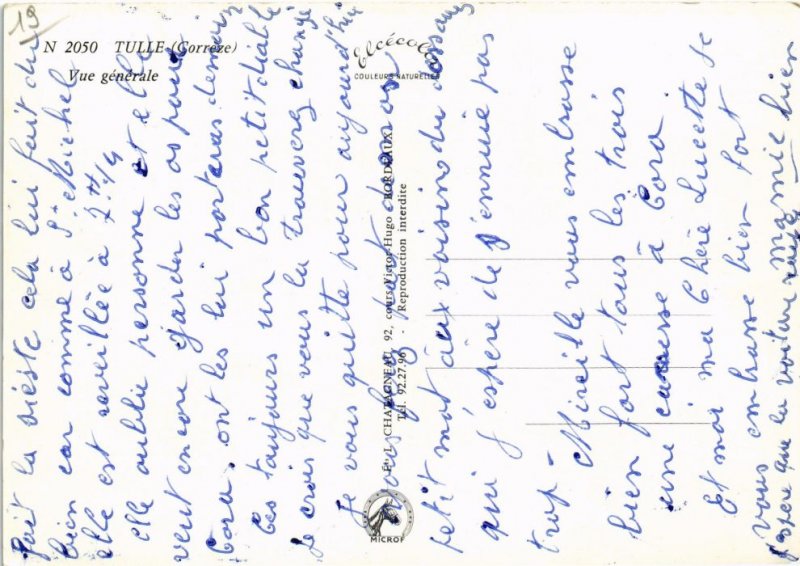 19
N 2050 TULLE (Corrèze)
Vue générale
Elcécolor
COULEURS NATURELLES
Ets L. CHATAGNEAU, 92, cours Victor-Hugo - BORDEAUX
Tél. 92.27.96 - Reproduction interdite
MICROF
fait la sieste cela lui fait du
bien car comme à St Michel
elle est réveillée à 2 H 1/4
elle oublie personne et elle
veut encore garder les os pour
Cora. ont les lui porteras demain
Ces toujours un bon petit diable
Je crois que vous la trouverez changé
Je vous quitte pour aujourd'hui
petit mot aux voisins du dessous
qui j'espère de s'ennuie pas
trop - Mireille vous embrasse
bien fort tous les trois
une caresse à Cora.
Et moi ma Chère Lucette je
vous embrasse bien fort
j'espère que la voiture Mamie
bien